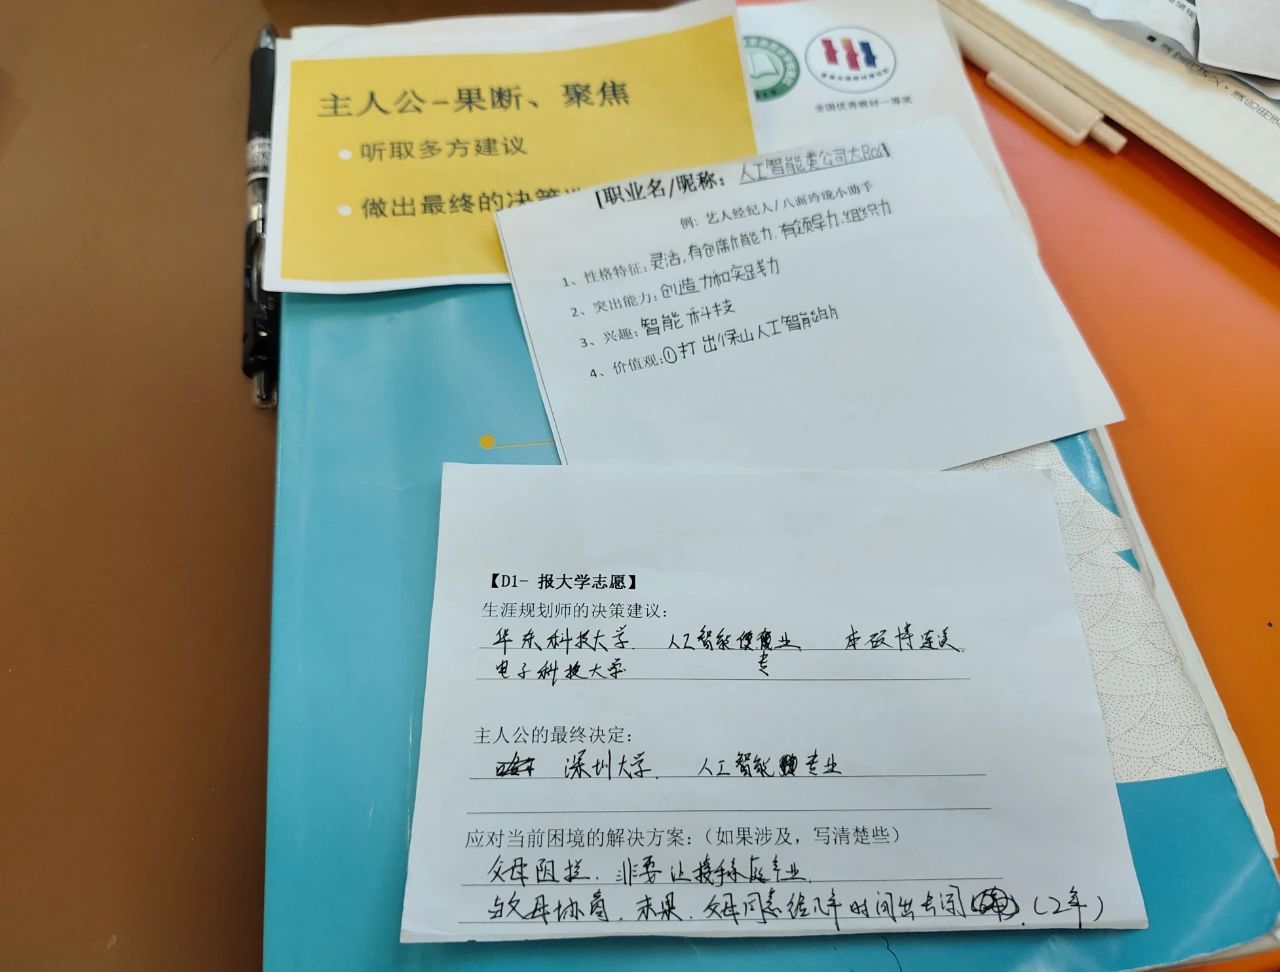 主人公-果断、聚焦
• 听取多方建议
• 做出最终的决策
全国优秀教材一等奖
【职业名/昵称：人工智能类公司大Boss】
例：艺人经纪人/八面玲珑小助手
1、性格特征：灵活，有创新能力，有领导力，组织力
2、突出能力：创造力和实践力
3、兴趣：智能科技
4、价值观：①打出保山人工智能的
【D1- 报大学志愿】
生涯规划师的决策建议：
华东科技大学 人工智能专业 本硕博连读
电子科技大学
主人公的最终决定：
深圳大学 人工智能专业
应对当前困境的解决方案：（如果涉及，写清楚些）
父母阻拦，非要让接手家庭产业
与父母协商，未果，父母同意给几年时间出去闯（2年）